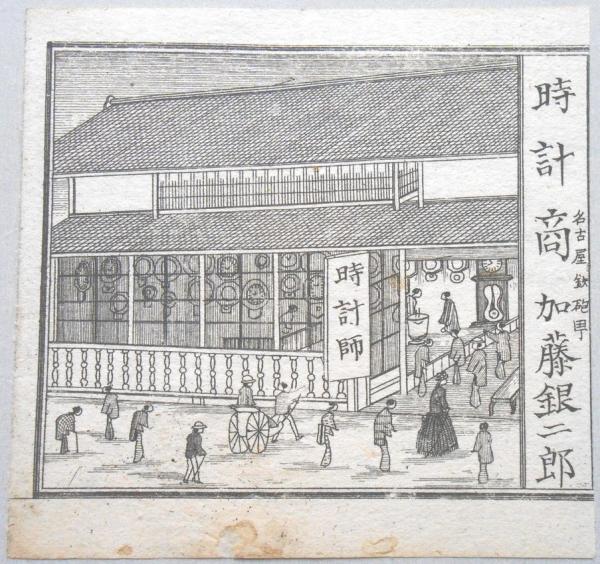 時計商 加藤銀二郎
名古屋鉄砲甼
時計師